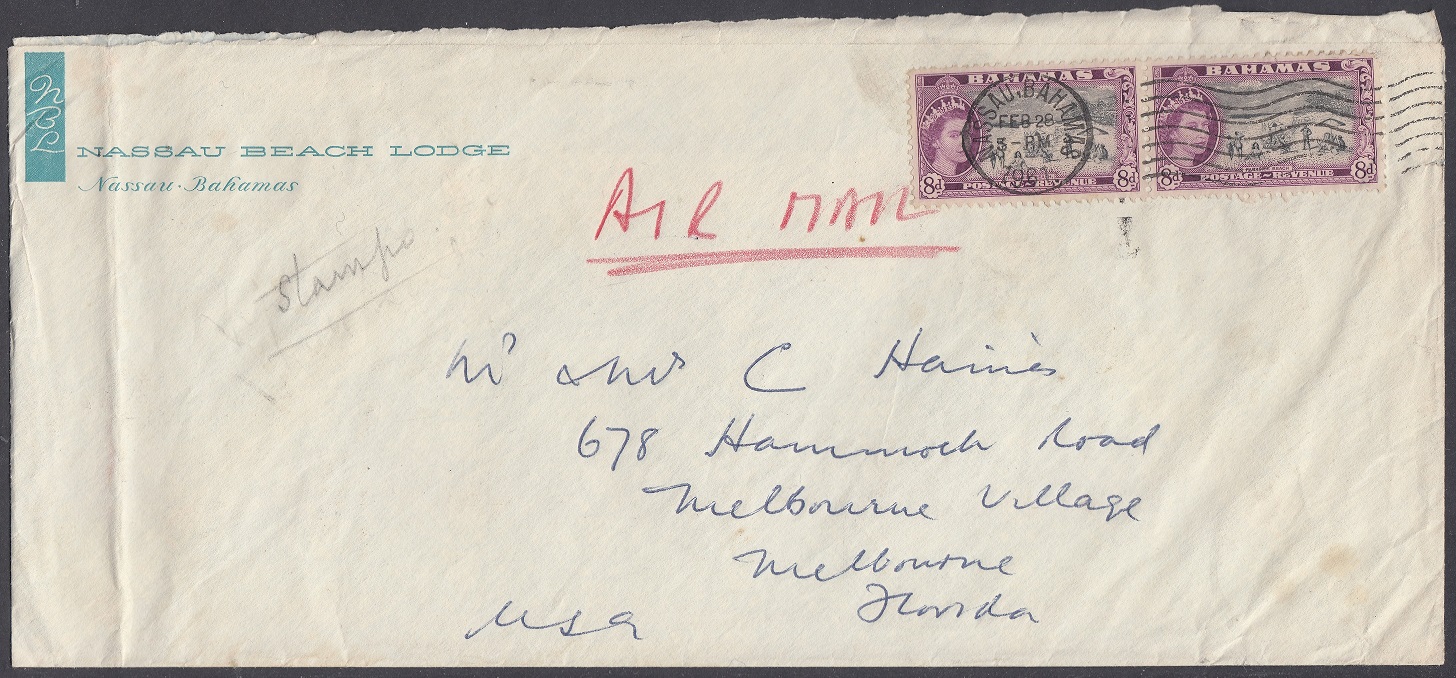 NBL
NASSAU BEACH LODGE
Nassau · Bahamas
BAHAMAS
8d POSTAGE REVENUE 8d
BAHAMAS
8d POSTAGE REVENUE 8d
NASSAU, BAHAMAS
FEB 28
3 - PM
1961
AIR MAIL
Stamps
Mr & Mrs C Haines
678 Hammock Road
Melbourne Village
Melbourne
Florida
USA